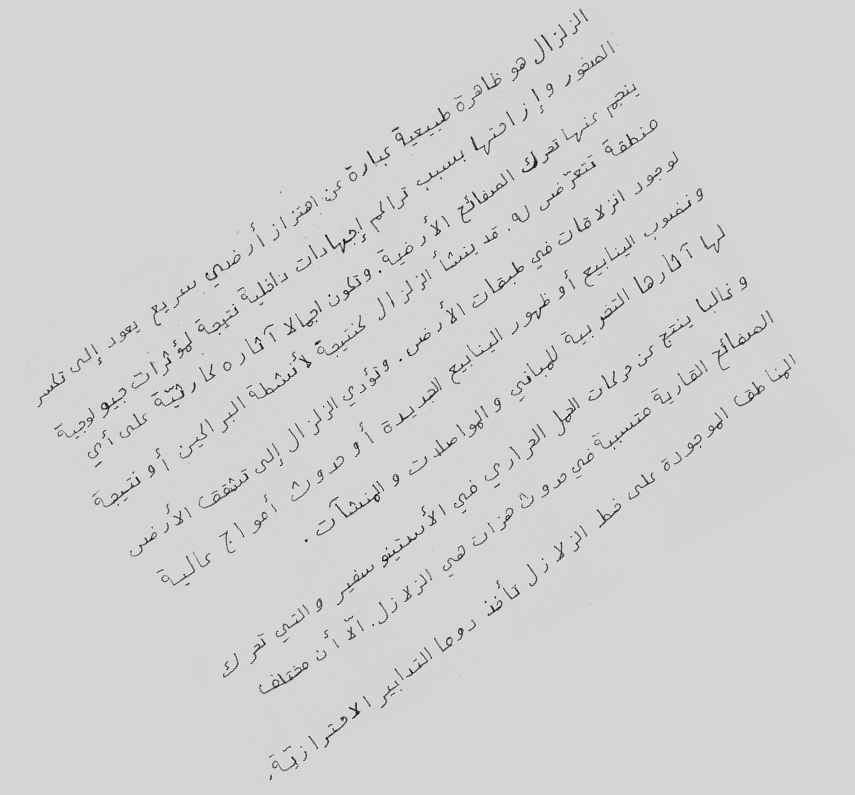 الزلزال هو ظاهرة طبيعية عبارة عن اهتزاز أرضي سريع يعود إلى تكسر
الصخور وإزاحتها بسبب تراكم إجهادات داخلية نتيجة لمؤثرات جيولوجية
ينجم عنها تحرك الصفائح الأرضية. وتكون اجمالا آثاره كارثيّة على أي
منطقة تتعرّض له. قد ينشأ الزلزال كنتيجة لأنشطة البراكين أو نتيجة
لوجود انزلاقات في طبقات الأرض. وتؤدي الزلزال إلى تشقق الأرض
ونضوب الينابيع أو ظهور الينابيع الجديدة أو حدوث أمواج عالية
لها آثارها التخريبية للمباني والمواصلات والمنشآت.
وغالبا ينتج عن حركات الحمل الحراري في الأستينوسفير والتي تحرك
الصفائح القارية متسببة في حدوث هزات هي الزلازل. الّا أن مختلف
المناطق الموجودة على خط الزلازل تأخذ دوما التدابير الاحترازيّة.